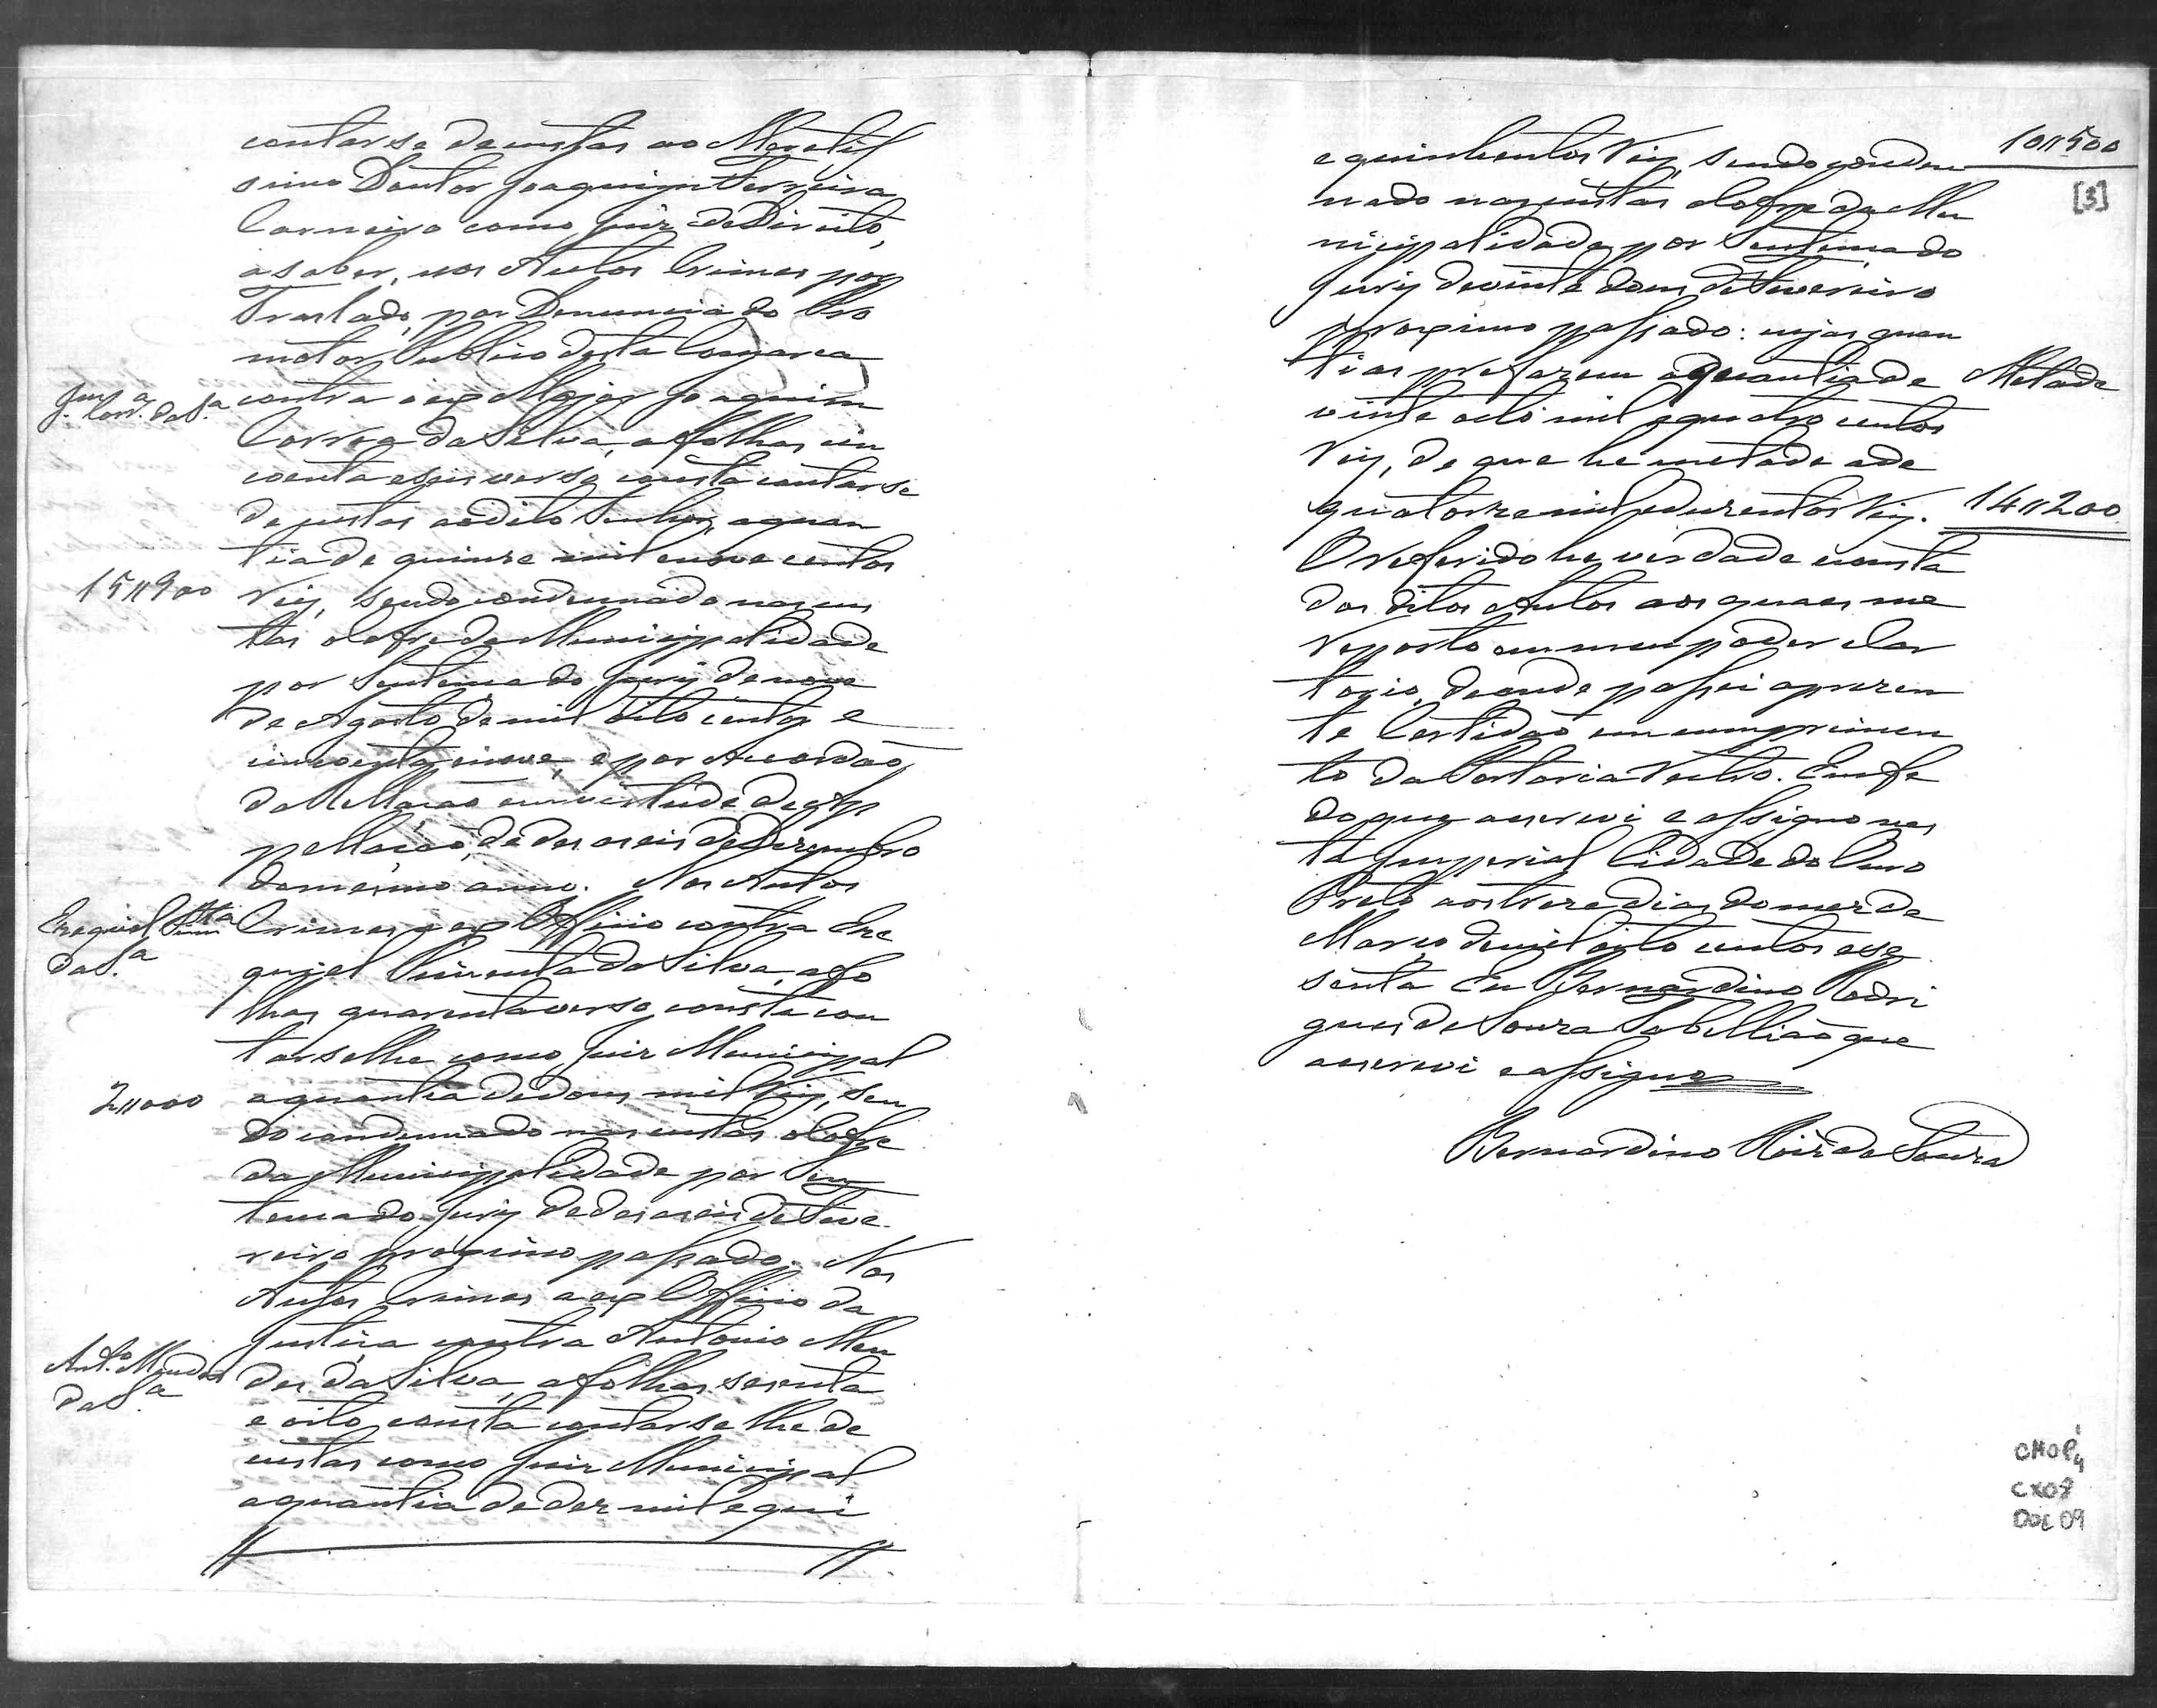 contarse de custas ao Meretis
simo Doutor Joaquim Ferreira
Carneiro como Juiz de Direito,
a saber, nos Autos Crimes por
Traslado, por Denuncia do Pro
motor Publico desta Comarca
contra o ex Major Joaquim
Joaq.
Corr.a da S.a
Correa da Silva, a folhas cin
coenta e seis verso consta contarse
de custas ao dito Senhor, a quan
tia de quinze mil e nove centos
15||900
reis, sendo condemnado nas cus
tas o Cofre da Municipalidade
por Sentença do Jury de nove
de Agosto de mil oito centos e
cincoenta e nove, e por Accordão
da Rellação em virtude de Ap
pellação, de des aseis de Dezembro
do mesmo anno. Nos Autos
Ezequiel Pimta
da S.a
Crimes ex Officio contra Eze
quiel Pimenta da Silva, a fo
lhas quarenta verso, consta con
tarselhe como Juiz Municipal
2||000
a quantia de dous mil reis, sen
do condemnado nas custas o Cofre
da Municipalidade por Sen
tença do Jury de des aseis de Feve
reiro proximo passado. Nos
Autos Crimes a ex Officio da
Justiça contra Antonio Men
Ant.o Mendes
da S.a
des da Silva, a folhas secenta
e oito, consta contarse lhe de
custas como Juiz Municipal
a quantia de dez mil e qui
10||500
e quinhentos reis, sendo condem
[3]
nado nas custas o Cofre da Mu
nicipalidade, por Sentença do
Jury de vinte dous de Fevereiro
proximo passado: cujas quan
tias prefazem a quantia de
Metade
vinte oito mil e quatro centos
reis, de que he metade a de
quatorze mil e duzentos reis.
14||200
O referido he verdade e consta
dos ditos Autos aos quaes me
reporto em meu poder e Car
torio, de onde passei a prezen
te Certidão em cumprimen
to da Portaria retro. Em fe
do que escrevi e assigno nes
ta Imperial Cidade do Ouro
Preto aos treze dias do mez de
Março de mil oito centos e se
senta Eu Bernardino Rodri
gues de Souza Tabellião que
escrevi e assigno
Bernardino Roiz de Souza
CMOP
CX07
DOC 09